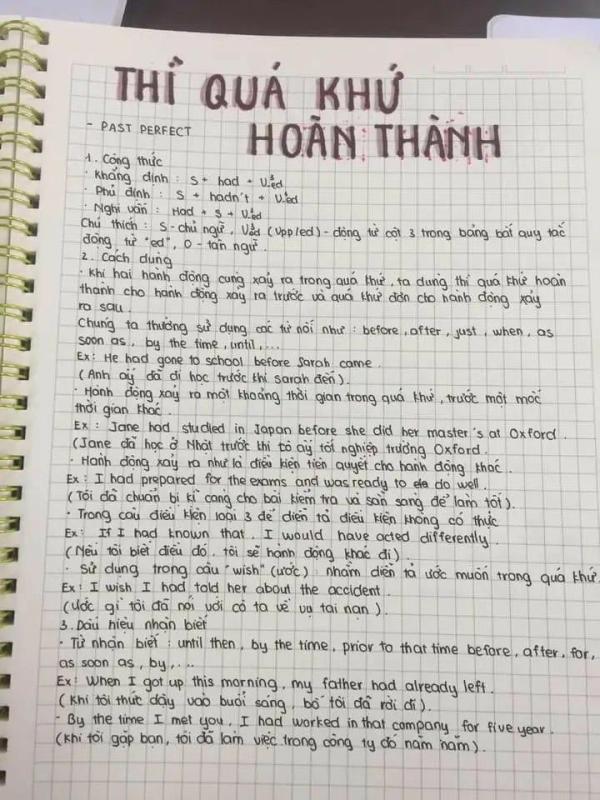 THÌ QUÁ KHỨ
- PAST PERFECT
HOÀN THÀNH
1. Công thức
· Khẳng định : S + had + V3/ed
· Phủ định : S + hadn't + V3/ed
· Nghi vấn : Had + S + V3/ed
Chú thích : S - chủ ngữ, V3/ed (Vpp/ed) - động từ cột 3 trong bảng bất quy tắc
động từ "ed", O - tân ngữ.
2. Cách dùng
· Khi hai hành động cùng xảy ra trong quá khứ, ta dùng thì quá khứ hoàn
thành cho hành động xảy ra trước và quá khứ đơn cho hành động xảy
ra sau.
Chúng ta thường sử dụng các từ nối như : before, after, just, when, as
soon as, by the time, until,...
Ex: He had gone to school before Sarah came.
(Anh ấy đã đi học trước khi sarah đến).
· Hành động xảy ra một khoảng thời gian trong quá khứ, trước một mốc
thời gian khác.
Ex : Jane had studied in Japan before she did her master's at Oxford.
(Jane đã học ở Nhật trước khi cô ấy tốt nghiệp trường Oxford.
· Hành động xảy ra như là điều kiện tiên quyết cho hành động khác.
Ex : I had prepared for the exams and was ready to do well.
(Tôi đã chuẩn bị kĩ càng cho bài kiểm tra và sẵn sàng để làm tốt).
· Trong câu điều kiện loại 3 để diễn tả điều kiện không có thực
Ex: If I had known that, I would have acted differently.
(Nếu tôi biết điều đó, tôi sẽ hành động khác đi).
· Sử dụng trong câu "wish" (ước) : nhằm diễn tả ước muốn trong quá khứ.
Ex: I wish I had told her about the accident.
(Ước gì tôi đã nói với cô ta về vụ tai nạn).
3. Dấu hiệu nhận biết
· Từ nhận biết : until then, by the time, prior to that time before, after, for,
as soon as, by,...
Ex: When I got up this morning, my father had already left.
(Khi tôi thức dậy vào buổi sáng, bố tôi đã rời đi).
- By the time I met you, I had worked in that company for five year.
(Khi tôi gặp bạn, tôi đã làm việc trong công ty đó năm năm).